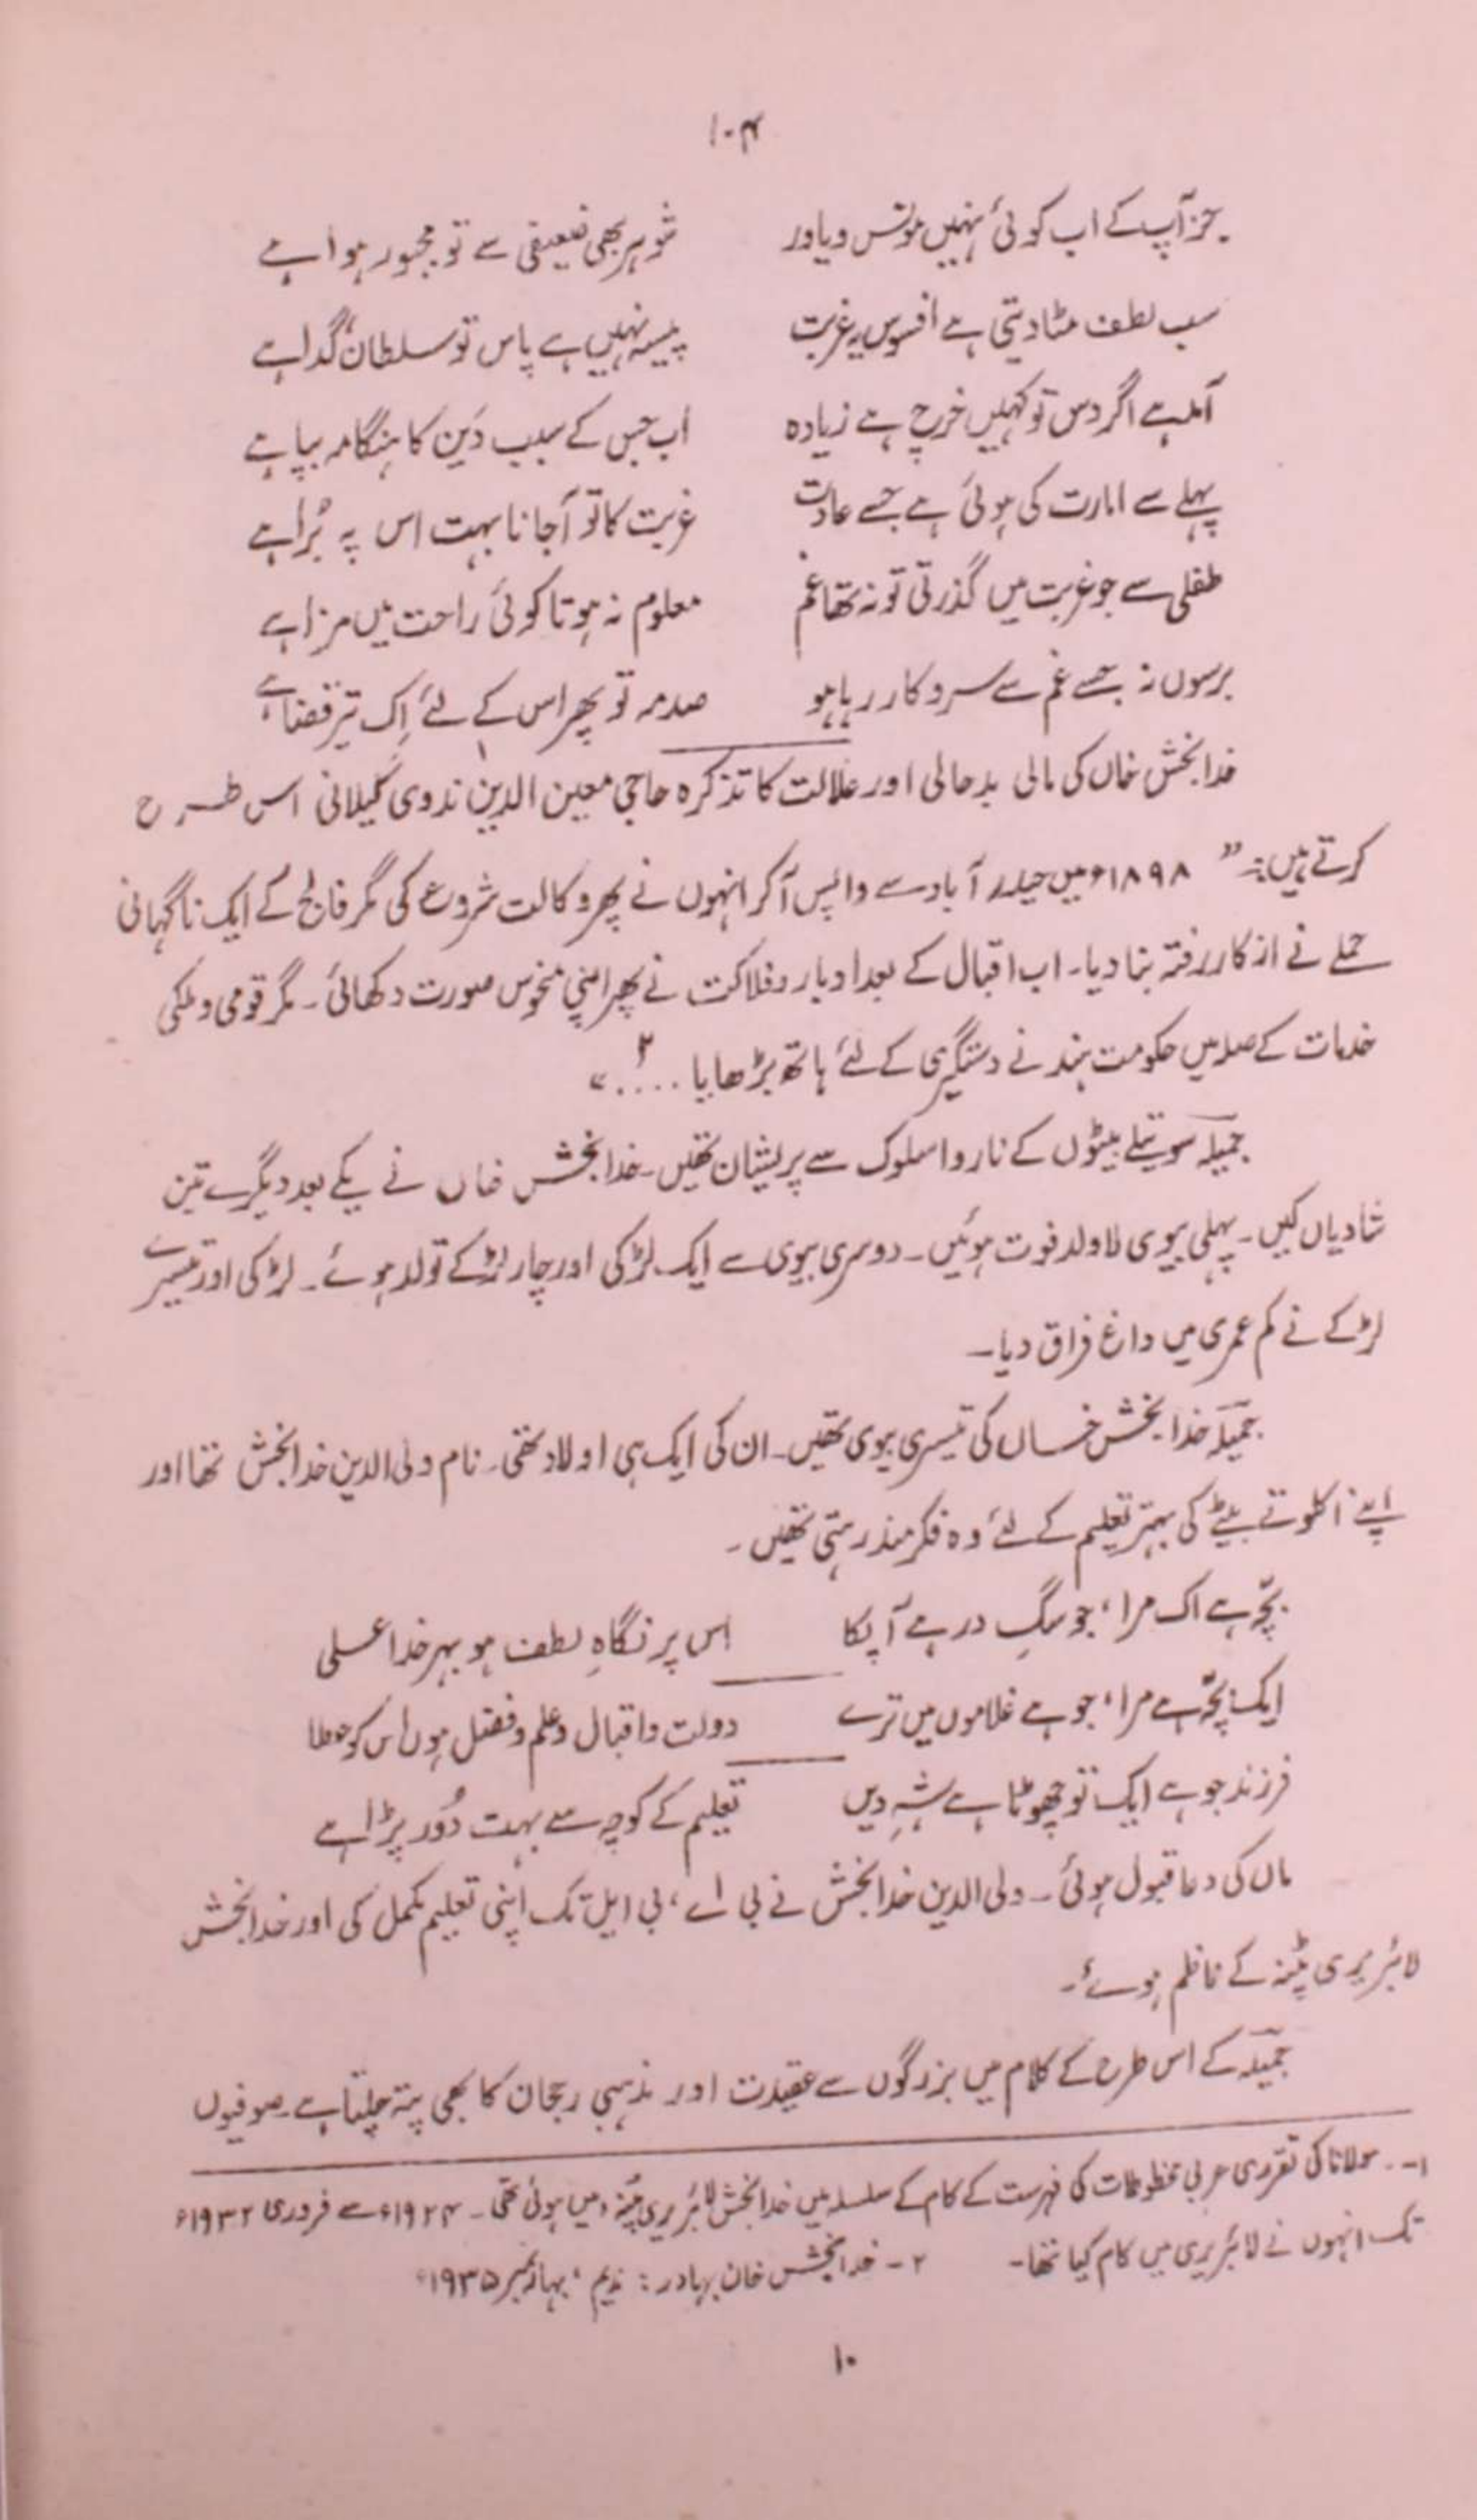 ۱۰۴
جز آپ کے اب کوئی نہیں مونس و یاور شوہر بھی ضعیفی سے تو مجبور ہوا ہے
سب لطف مٹا دیتی ہے افسوس یہ غربت پیسہ نہیں ہے پاس تو سلطان گدا ہے
آمد ہے اگر دس تو کہیں خرچ ہے زیادہ اب جس کے سبب دَین کا ہنگامہ بپا ہے
پہلے سے امارت کی ہوئی ہے جسے عادت غربت کا تو آجانا بہت اس پہ بُرا ہے
طفلی سے جو غربت میں گذرتی تو نہ تھا غم معلوم نہ ہوتا کوئی راحت میں مزا ہے
برسوں نہ جسے غم سے سروکار رہا ہو صدمہ تو پھر اس کے لئے اِک تیر قضا ہے
خدا بخش خاں کی مالی بدحالی اور علالت کا تذکرہ حاجی معین الدین ندوی گیلانی۱ اس طرح
کرتے ہیں:۔ " ۱۸۹۸ء میں حیدر آباد سے واپس آکر انہوں نے پھر وکالت شروع کی مگر فالج کے ایک ناگہانی
حملے نے از کار رفتہ بنا دیا۔ اب اقبال کے بعد ادبار و فلاکت نے پھر اپنی منحوس صورت دکھائی۔ مگر قومی و ملکی
خدمات کے صلہ میں حکومت ہند نے دستگیری کے لئے ہاتھ بڑھایا ....۲"
جمیلہ سوتیلے بیٹوں کے ناروا سلوک سے پریشان تھیں۔ خدا بخش خاں نے یکے بعد دیگرے تین
شادیاں کیں۔ پہلی بیوی لاولد فوت ہوئیں۔ دوسری بیوی سے ایک لڑکی اور چار لڑکے تولد ہوئے۔ لڑکی اور تیسرے
لڑکے نے کم عمری میں داغ فراق دیا۔
جمیلہ خدا بخش خاں کی تیسری بیوی تھیں۔ ان کی ایک ہی اولاد تھی۔ نام ولی الدین خدا بخش تھا اور
اپنے اکلوتے بیٹے کی بہتر تعلیم کے لئے وہ فکر مند رہتی تھیں۔
بچّہ ہے اک مرا، جو سگِ در ہے آپکا اِس پر نگاہِ لطف ہو بہر خدا علی
ایک بچّہ ہے مرا، جو ہے غلاموں میں ترے دولت و اقبال و علم و فضل ہوں اس کو عطا
فرزند جو ہے ایک تو چھوٹا ہے شہِ دیں تعلیم کے کوچہ سے بہت دُور پڑا ہے
ماں کی دعا قبول ہوئی۔ ولی الدین خدا بخش نے بی اے، بی ایل تک اپنی تعلیم مکمل کی اور خدا بخش
لائبریری پٹنہ کے ناظم ہوئے۔
جمیلہ کے اس طرح کے کلام میں بزرگوں سے عقیدت اور مذہبی رجحان کا بھی پتہ چلتا ہے۔ صوفیوں
۱۔ مولانا کی تقرری عربی مخطوطات کی فہرست کے کام کے سلسلہ میں خدا بخش لائبریری پٹنہ میں ہوئی تھی۔ ۱۹۲۴ء سے فروری ۱۹۳۲ء
تک انہوں نے لائبریری میں کام کیا تھا۔ ۲۔ خدا بخش خان بہادر: ندیم، بہار نمبر ۱۹۳۵ء
۱۰